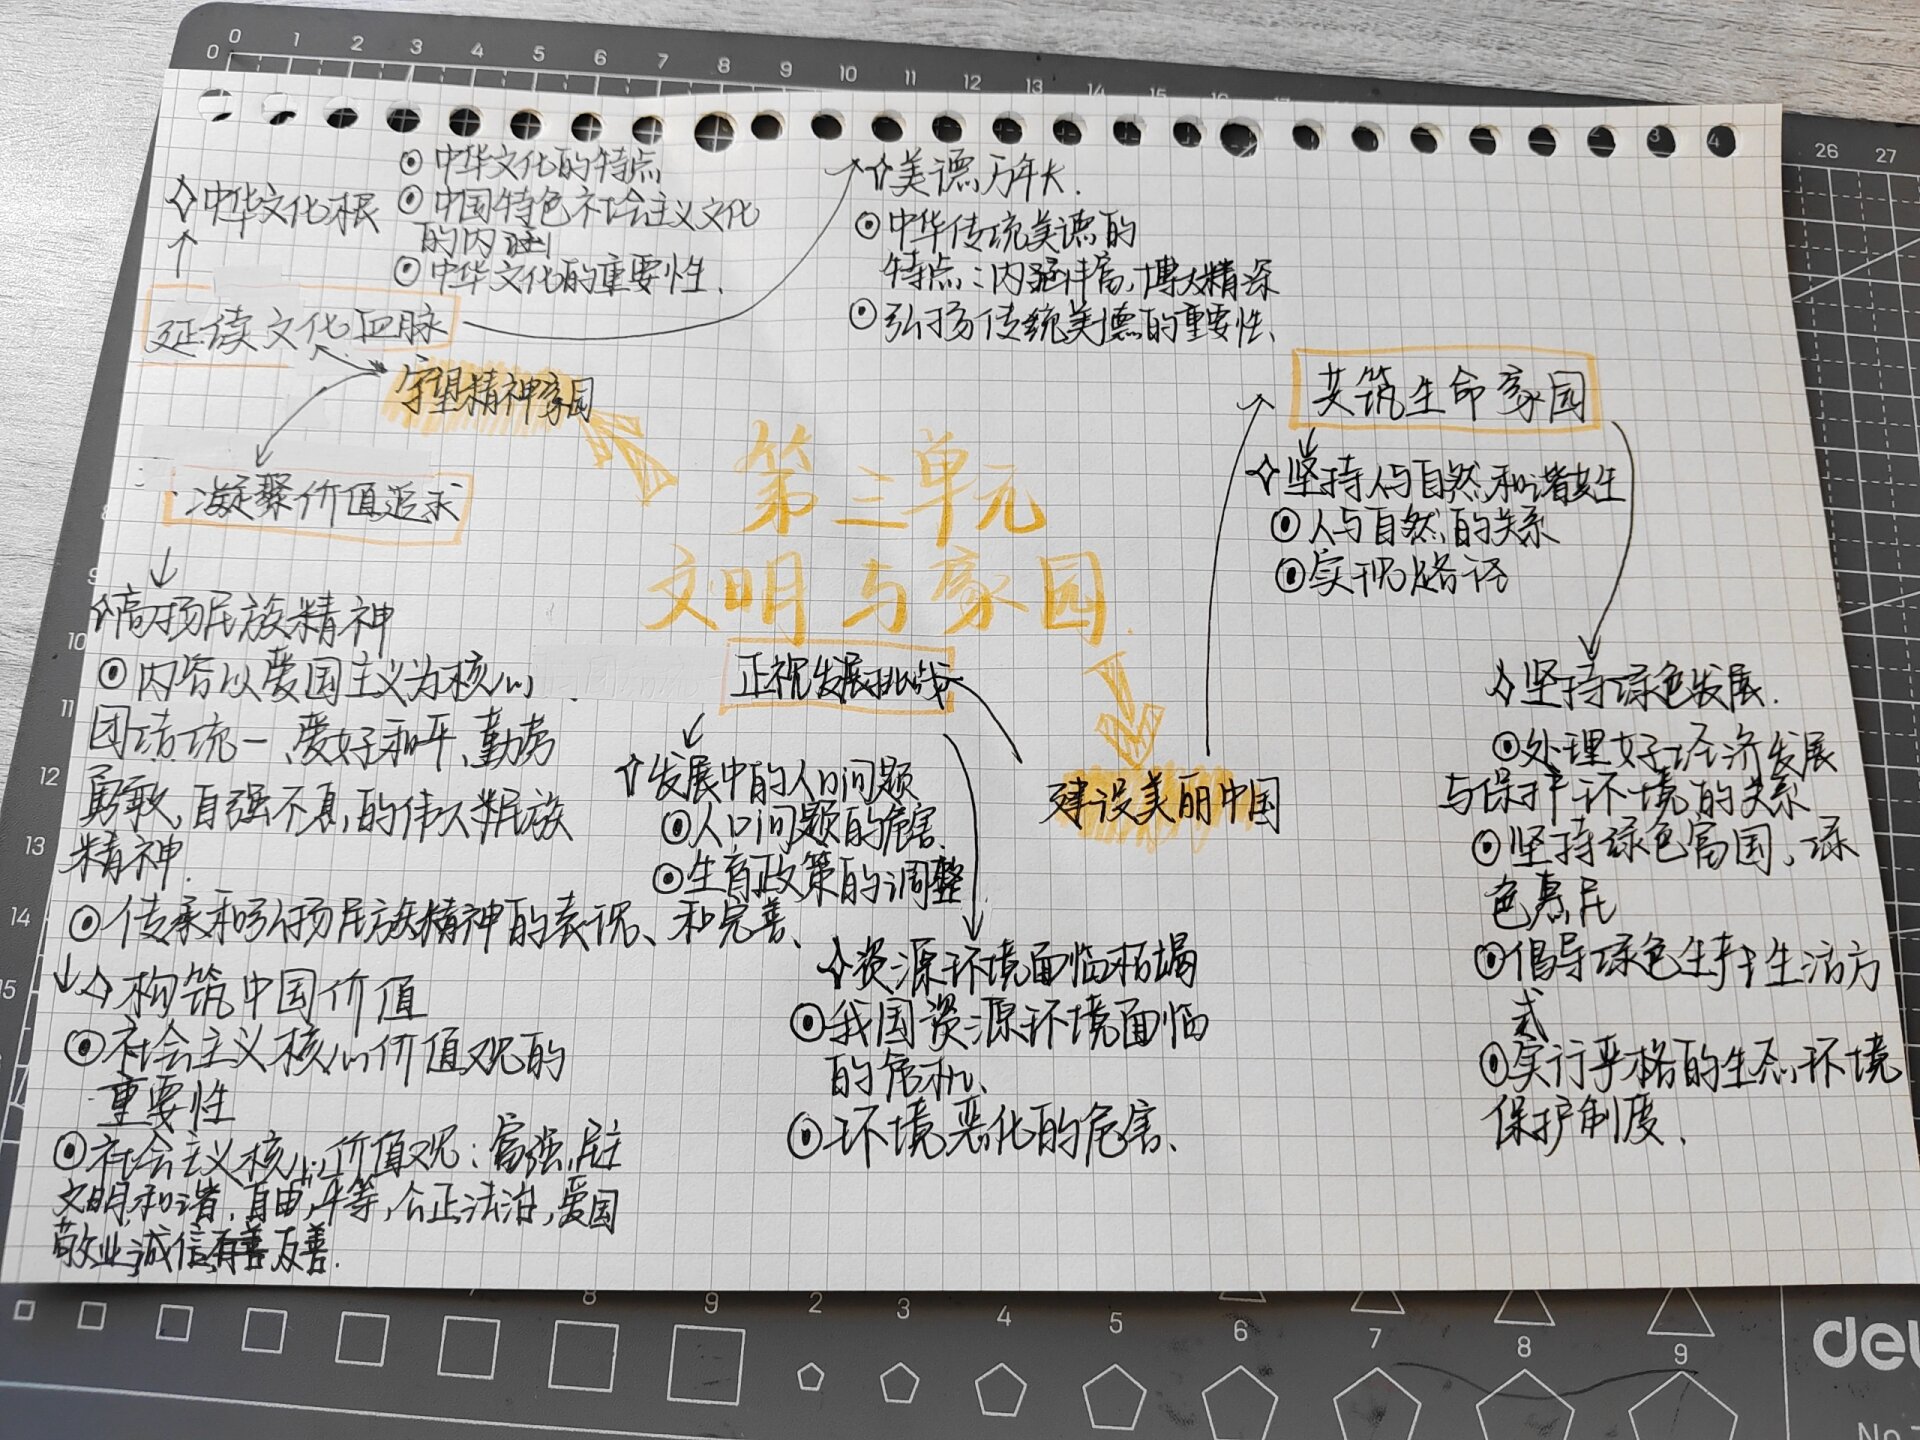 中华文化根
中华文化的特点
中国特色社会主义文化
的内涵
中华文化的重要性.
美德万年长.
中华传统美德的
特点:内涵丰富,博大精深
弘扬传统美德的重要性、
延续文化血脉
守望精神家园
凝聚价值追求
第三单元
文明与家园
共筑生命家园
坚持人与自然和谐共生
人与自然的关系
实现路径
高扬民族精神
内容以爱国主义为核心
团结统一、爱好和平、勤劳
勇敢,自强不息,的伟大民族
精神.
传承和弘扬民族精神的表现、和完善、
构筑中国价值
社会主义核心价值观的
重要性
社会主义核心价值观:富强,民主
文明,和谐,自由,平等,公正,法治,爱国
敬业,诚信,友善.
正视发展挑战
发展中的人口问题
人口问题的危害.
生育政策的调整
建设美丽中国
资源环境面临枯竭
我国资源环境面临
的危机、
环境恶化的危害、
坚持绿色发展.
处理好经济发展
与保护环境的关系
坚持绿色富国、绿
色惠民
倡导绿色生产生活方
式
实行严格的生态环境
保护制度、
0 1 2 3 4 5 6 7 8 9 10 11 12 13 14 15
26 27
9
10
11
12
13
14
15
7 8 9 2 3 4 5 6 7 8 9